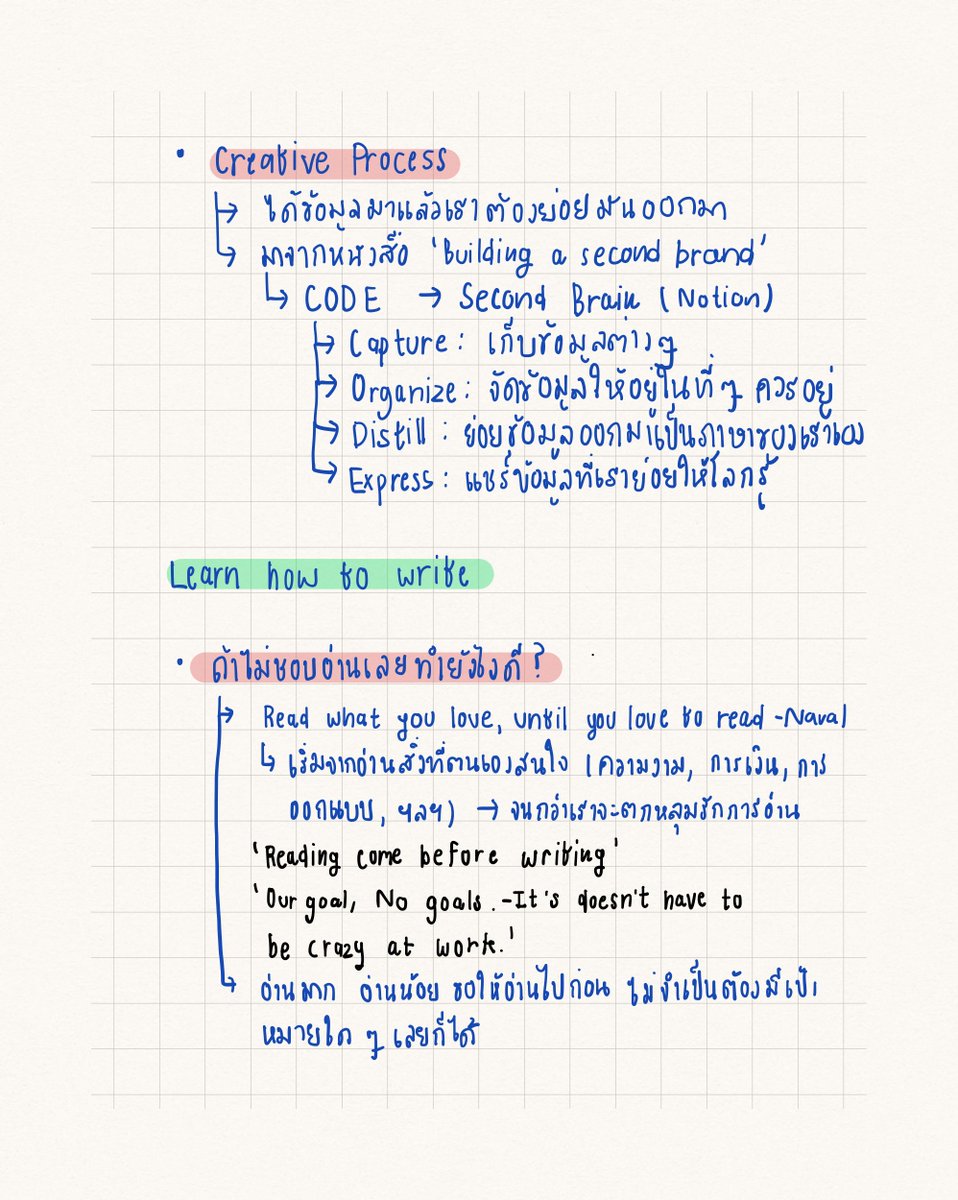 • Creative Process
↳ ได้ข้อมูลมาแล้วเราต้องย่อยมันออกมา
↳ มาจากหนังสือ 'Building a second brand'
↳ CODE → Second Brain (Notion)
↳ Capture : เก็บข้อมูลต่างๆ
↳ Organize : จัดข้อมูลให้อยู่ในที่ๆ ควรอยู่
↳ Distill : ย่อยข้อมูลออกมาเป็นภาษาของเราเอง
↳ Express : แชร์ข้อมูลที่เราย่อยให้โลกรู้
Learn how to write
• ถ้าไม่ชอบอ่านเลยทำยังไงดี?
↳ Read what you love, until you love to read -Naval
↳ เริ่มจากอ่านสิ่งที่ตนเองสนใจ (ความงาม, การเงิน, การ
ออกแบบ, ฯลฯ) → จนกว่าเราจะตกหลุมรักการอ่าน
'Reading come before writing'
'Our goal, No goals. -It's doesn't have to
be crazy at work.'
↳ อ่านมาก อ่านน้อย ขอให้อ่านไปก่อน ไม่จำเป็นต้องมีเป้า
หมายใด ๆ เลยก็ได้